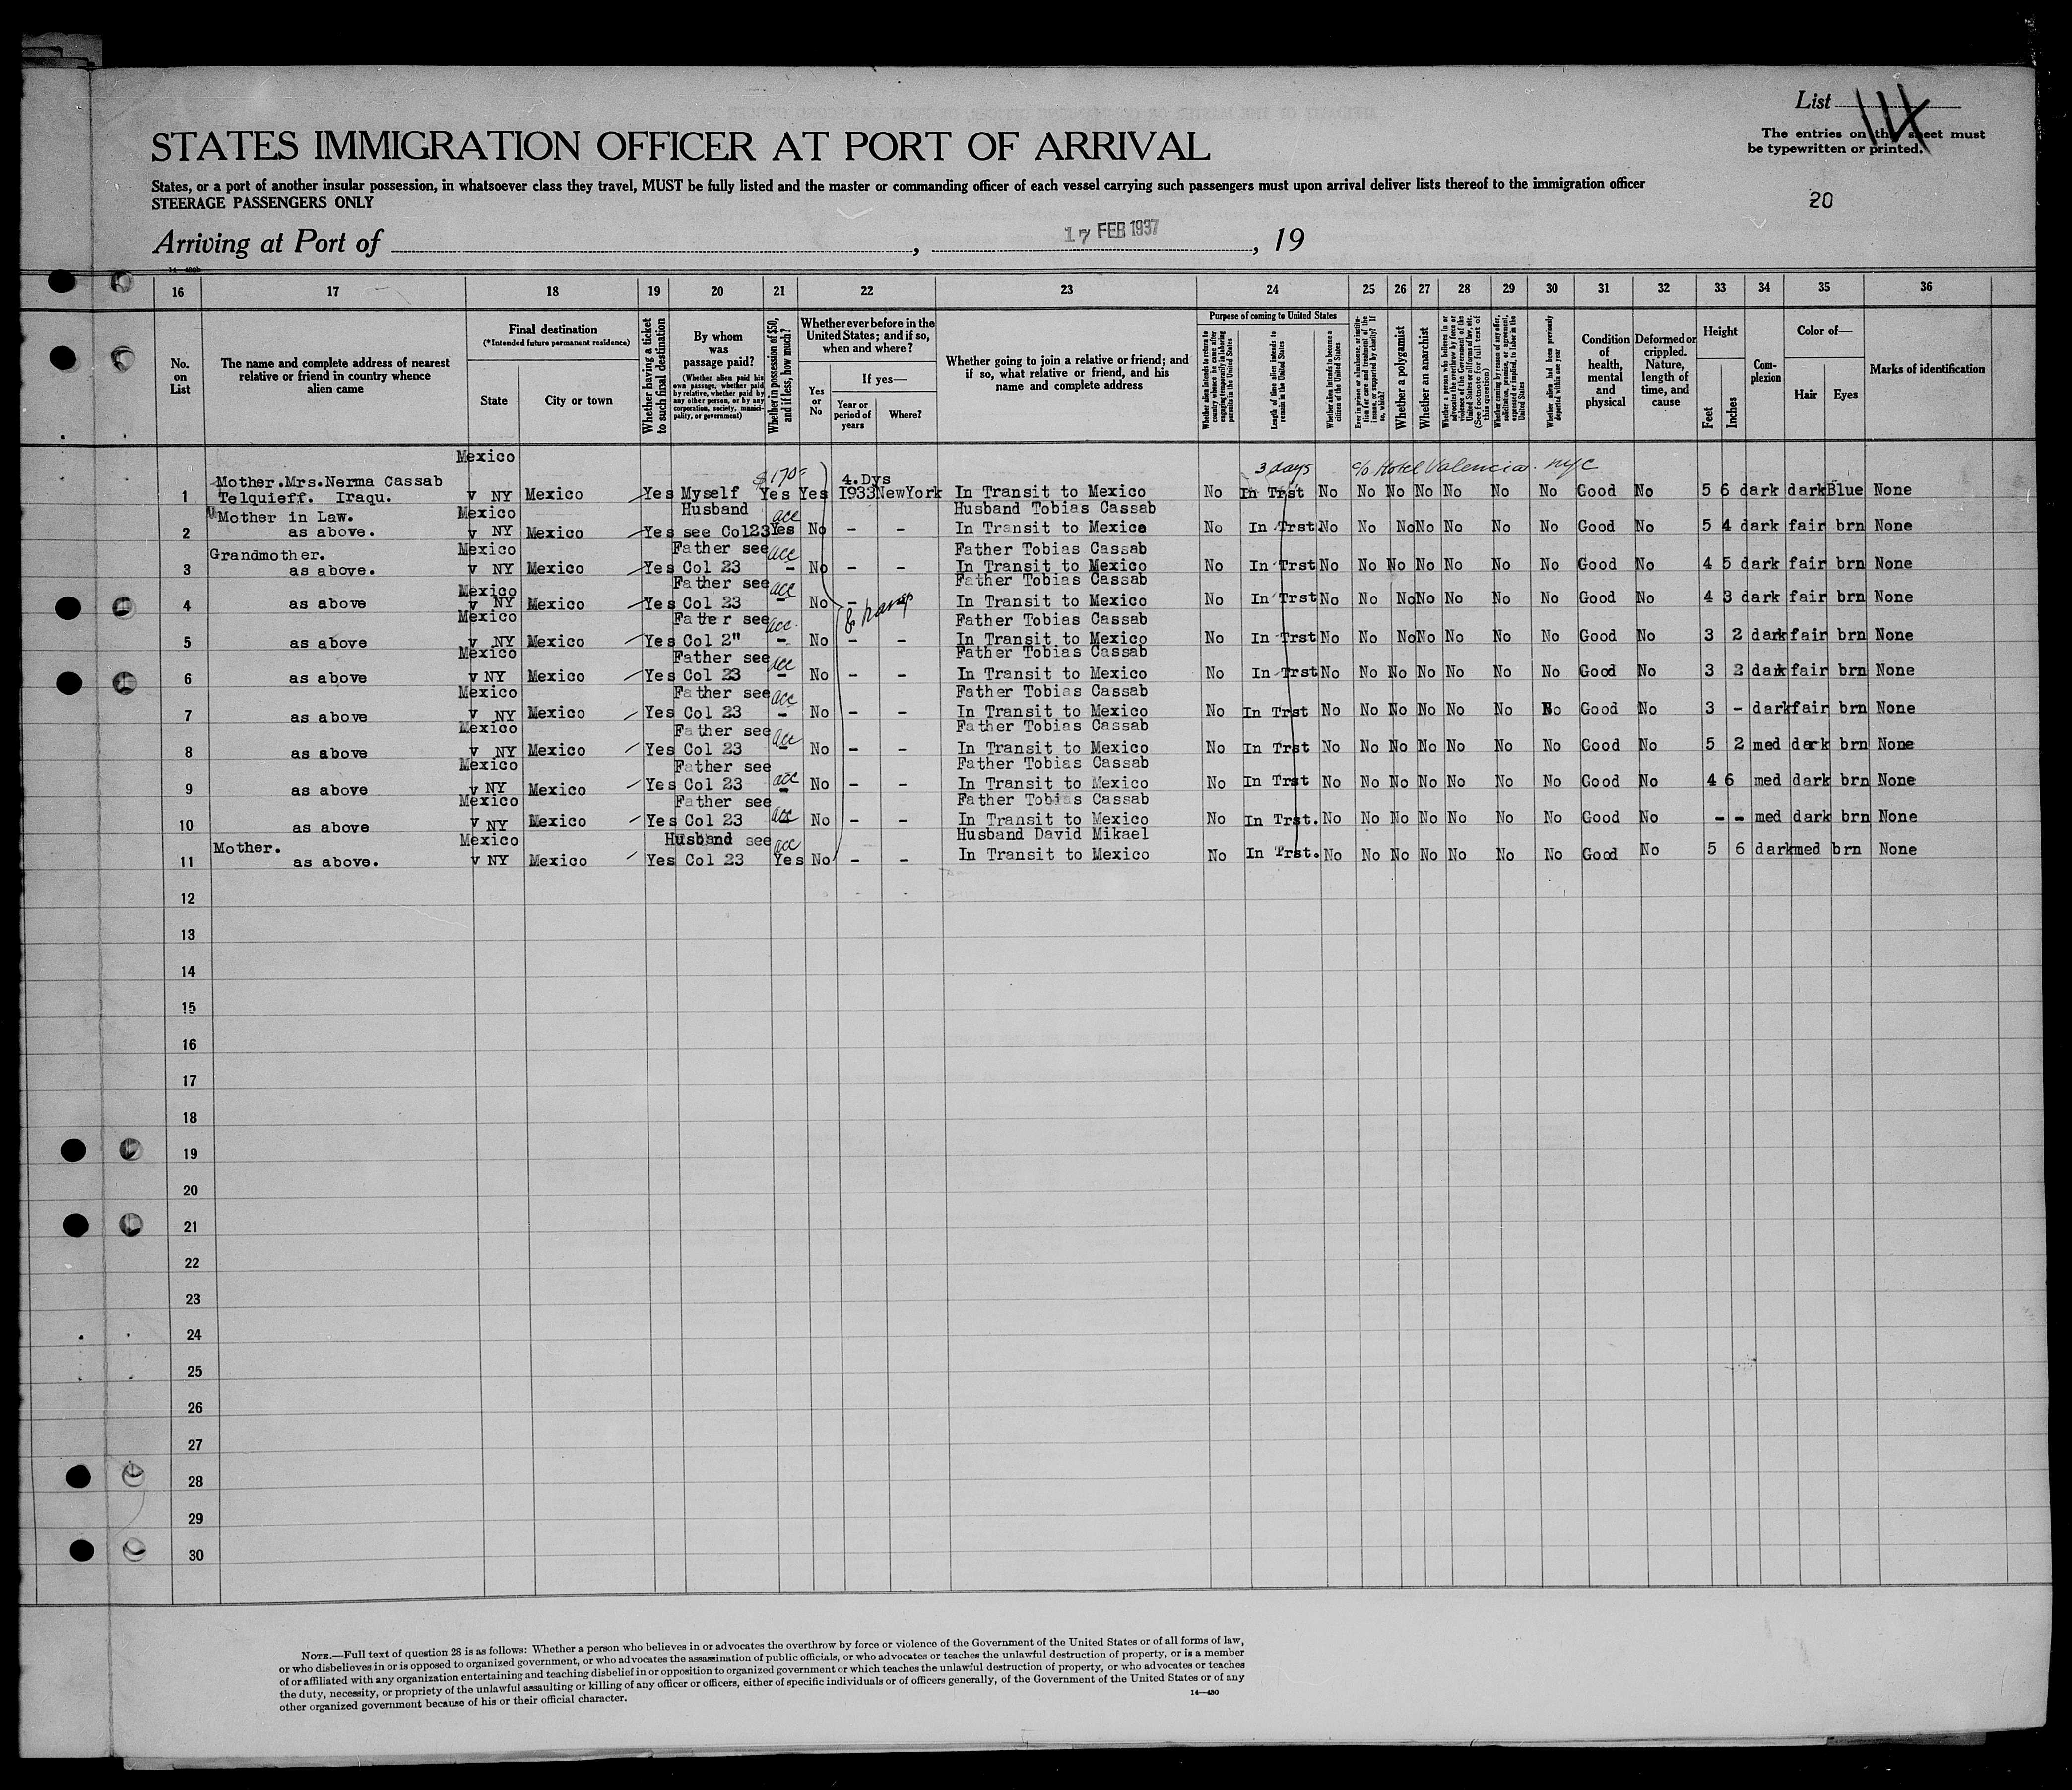 List
The entries on this sheet must
be typewritten or printed.
STATES IMMIGRATION OFFICER AT PORT OF ARRIVAL
States, or a port of another insular possession, in whatsoever class they travel, MUST be fully listed and the master or commanding officer of each vessel carrying such passengers must upon arrival deliver lists thereof to the immigration officer
STEERAGE PASSENGERS ONLY
20
Arriving at Port of , 17 FEB 1937 , 19
14—430b
16 17 18 19 20 21 22 23 24 25 26 27 28 29 30 31 32 33 34 35 36
No. on List
The name and complete address of nearest relative or friend in country whence alien came
Final destination
(*Intended future permanent residence)
State
City or town
Whether having a ticket to such final destination
By whom was passage paid?
(Whether alien paid his own passage, whether paid by relative, whether paid by any other person, or by any corporation, society, municipality, or government)
Whether in possession of $50, and if less, how much?
Whether ever before in the United States; and if so, when and where?
Yes or No
If yes—
Year or period of years
Where?
Whether going to join a relative or friend; and if so, what relative or friend, and his name and complete address
Purpose of coming to United States
Whether alien intends to return to country whence he came after engaging temporarily in laboring pursuits in the United States
Length of time alien intends to remain in the United States
Whether alien intends to become a citizen of the United States
Ever in prison or almshouse, or institution for care and treatment of the insane, or supported by charity? If so, which?
Whether a polygamist
Whether an anarchist
Whether a person who believes in or advocates the overthrow by force or violence of the Government of the United States or all forms of law, etc. (See footnote for full text of this question)
Whether coming by reason of any offer, solicitation, promise, or agreement, expressed or implied, to labor in the United States
Whether alien had been previously deported within one year
Condition of health, mental and physical
Deformed or crippled. Nature, length of time, and cause
Height
Feet
Inches
Complexion
Color of—
Hair
Eyes
Marks of identification
Mexico
$170 4.Dys 3 days c/o Hotel Valencia. nyc
Mother.Mrs.Nerma Cassab
1 Telquieff. Iraqu. v NY Mexico Yes Myself Yes Yes 1933 NewYork In Transit to Mexico No In Trst No No No No No No No Good No 5 6 dark dark Blue None
Mother in Law. Mexico Husband acc Husband Tobias Cassab
2 as above. v NY Mexico Yes see Col23 Yes No - - In Transit to Mexico No In Trst. No No No No No No No Good No 5 4 dark fair brn None
Grandmother. Mexico Father see acc Father Tobias Cassab
3 as above. v NY Mexico Yes Col 23 - No - - In Transit to Mexico No In Trst No No No No No No No Good No 4 5 dark fair brn None
Mexico Father see acc Father Tobias Cassab
4 as above v NY Mexico Yes Col 23 - No - In Transit to Mexico No In Trst No No No No No No No Good No 4 3 dark fair brn None
Mexico Father see acc. Father Tobias Cassab
5 as above v NY Mexico Yes Col 2" - No - - In Transit to Mexico No In Trst No No No No No No No Good No 3 2 dark fair brn None
Mexico Father see acc Father Tobias Cassab
6 as above v NY Mexico Yes Col 23 - No - - In Transit to Mexico No In Trst No No No No No No No Good No 3 2 dark fair brn None
Mexico Father see acc Father Tobias Cassab
7 as above v NY Mexico Yes Col 23 - No - - In Transit to Mexico No In Trst No No No No No No No Good No 3 - dark fair brn None
Mexico Father see acc Father Tobias Cassab
8 as above v NY Mexico Yes Col 23 - No - - In Transit to Mexico No In Trst No No No No No No No Good No 5 2 med dark brn None
Mexico Father see acc Father Tobias Cassab
9 as above v NY Mexico Yes Col 23 - No - - In Transit to Mexico No In Trst No No No No No No No Good No 4 6 med dark brn None
Mexico Father see acc Father Tobias Cassab
10 as above v NY Mexico Yes Col 23 No - - In Transit to Mexico No In Trst. No No No No No No No Good No - - med dark brn None
Mother. Mexico Husband see acc Husband David Mikael
11 as above. v NY Mexico Yes Col 23 Yes No - - In Transit to Mexico No In Trst. No No No No No No No Good No 5 6 dark med brn None
12
13
14
15
16
17
18
19
20
21
22
23
24
25
26
27
28
29
30
NOTE.—Full text of question 28 is as follows: Whether a person who believes in or advocates the overthrow by force or violence of the Government of the United States or of all forms of law,
or who disbelieves in or is opposed to organized government, or who advocates the assassination of public officials, or who advocates or teaches the unlawful destruction of property, or is a member
of or affiliated with any organization entertaining and teaching disbelief in or opposition to organized government or which teaches the unlawful destruction of property, or who advocates or teaches
the duty, necessity, or propriety of the unlawful assaulting or killing of any officer or officers, either of specific individuals or of officers generally, of the Government of the United States or of any
other organized government because of his or their official character.
14—430